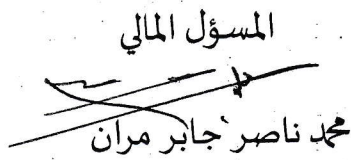 المسؤل المالي
محمد ناصر جابر مران